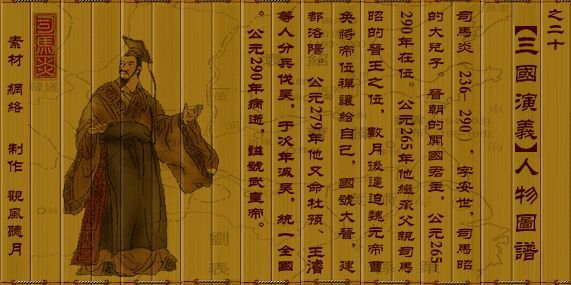 之二十
【三國演義】人物圖譜
司馬炎（236-290），字安世，司馬昭
的大兒子。晉朝的開國君主，公元265-
290年在位。公元265年他繼承父親司馬
昭的晉王之位，數月後逼迫魏元帝曹
奐將帝位禪讓給自己，國號大晉，建
都洛陽。公元279年他又命杜預、王濬
等人分兵伐吳，于次年滅吳，統一全國
。公元290年病逝，謚號武皇帝。
司馬炎
素材 網絡 制作 觀風聽月
劉表